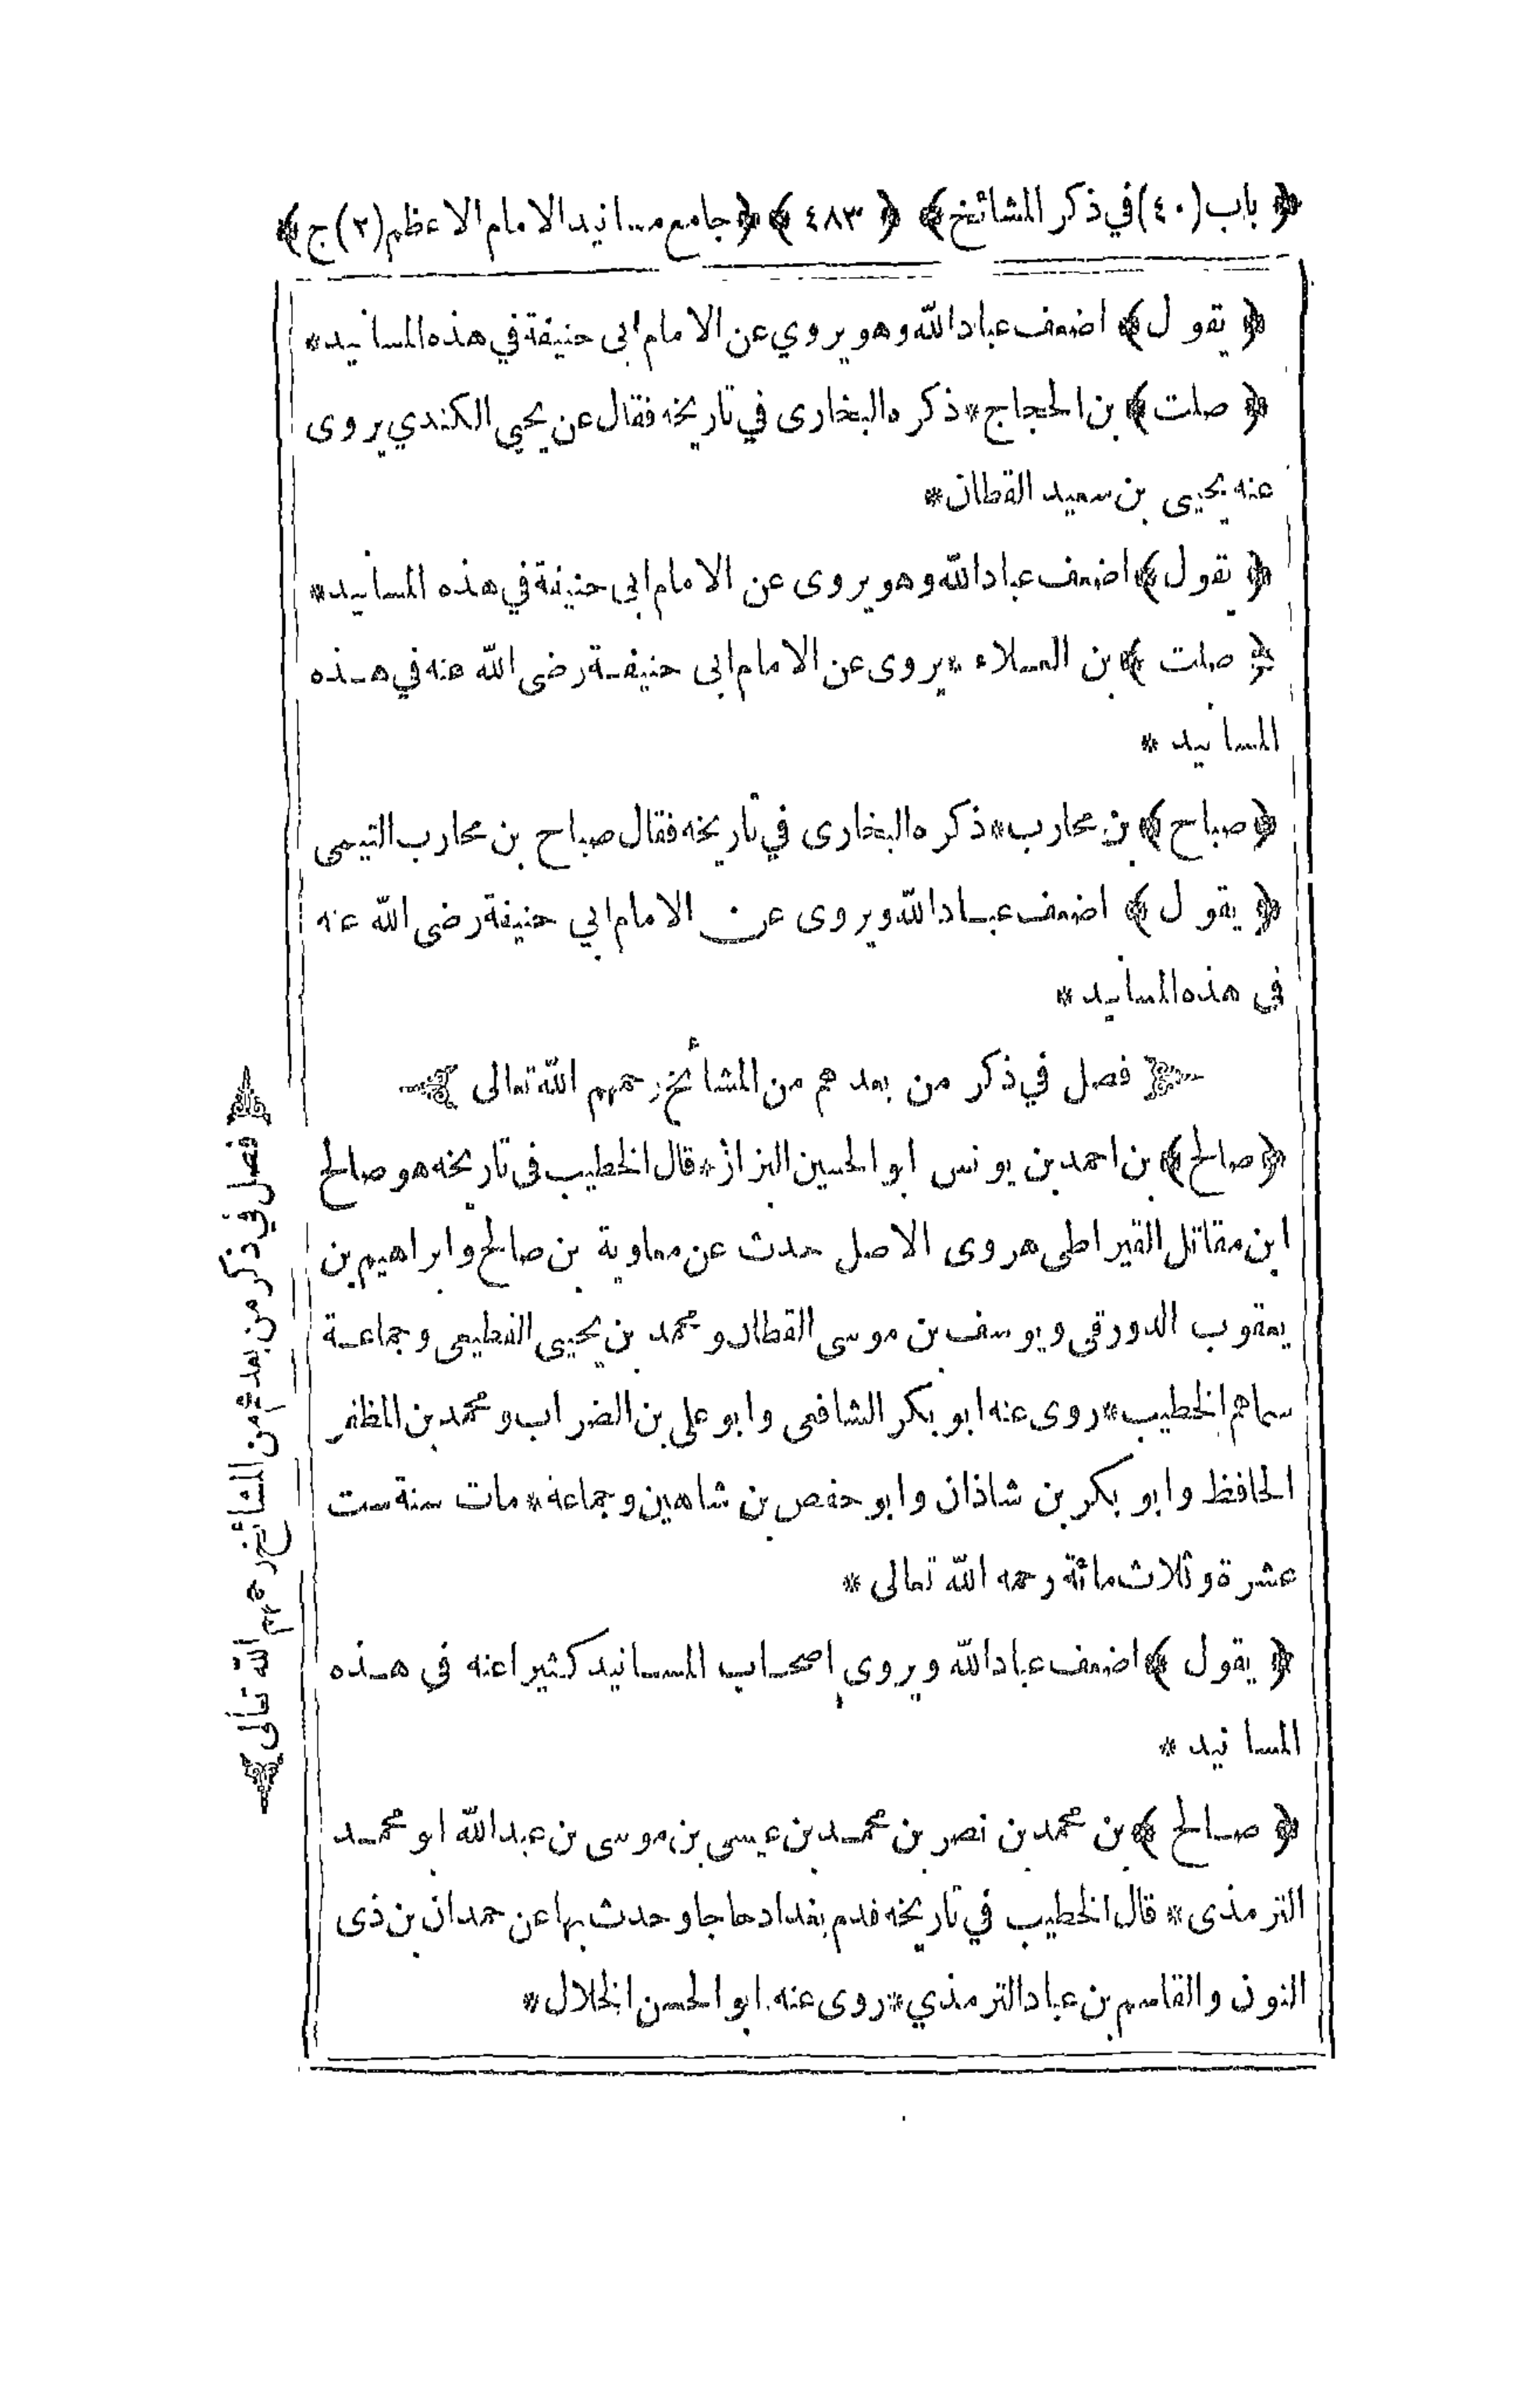 ﴿ باب (٤٠) في ذكر المشائخ ﴾ ﴿ ٤٨٣ ﴾ ﴿ جامع مسانيد الامام الاعظم (٢) ج ﴾
﴿ يقول ﴾ اضعف عباد الله وهو يروي عن الامام ابى حنيفة في هذه المسانيد *
﴿ صلت ﴾ بن الحجاج * ذكره البخارى في تاريخه فقال عن يحيى الكندي يروى
عنه يحيى بن سعيد القطان *
﴿ يقول ﴾ اضعف عباد الله وهو يروى عن الامام ابى حنيفة في هذه المسانيد *
﴿ صلت ﴾ بن العلاء * يروى عن الامام ابى حنيفة رضى الله عنه في هذه
المسانيد *
﴿ صباح ﴾ بن محارب * ذكره البخارى في تاريخه فقال صباح بن محارب التيمى
﴿ يقول ﴾ اضعف عباد الله ويروى عن الامام ابي حنيفة رضى الله عنه
فى هذه المسانيد *
فصل في ذكر من بعدهم من المشأئخ رحمهم الله تعالى
﴿ صالح ﴾ بن احمد بن يونس ابو الحسين البزاز * قال الخطيب فى تاريخه هو صالح
ابن مقاتل القيراطى هروى الاصل حدث عن معاوية بن صالح وابراهيم بن
يعقوب الدورقي ويوسف بن موسى القطان ومحمد بن يحيى القطيعى وجماعة
سماهم الخطيب * روى عنه ابو بكر الشافعى وابو على بن الضراب ومحمد بن المظفر
الحافظ وابو بكر بن شاذان وابو حفص بن شاهين وجماعة * مات سنة ست
عشرة وثلاث مائة رحمه الله تعالى *
﴿ يقول ﴾ اضعف عباد الله ويروى اصحاب المسانيد كثيرا عنه فى هذه
المسانيد *
﴿ صالح ﴾ بن محمد بن نصر بن محمد بن عيسى بن موسى بن عبد الله ابو محمد
الترمذى * قال الخطيب في تاريخه قدم بغداد حاجا وحدث بها عن حمدان بن ذى
النون والقاسم بن عباد الترمذي * روى عنه ابو الحسن الخلال *
﴿ فصل في ذكر من بعدهم من المشائخ رحمهم الله تعالى ﴾